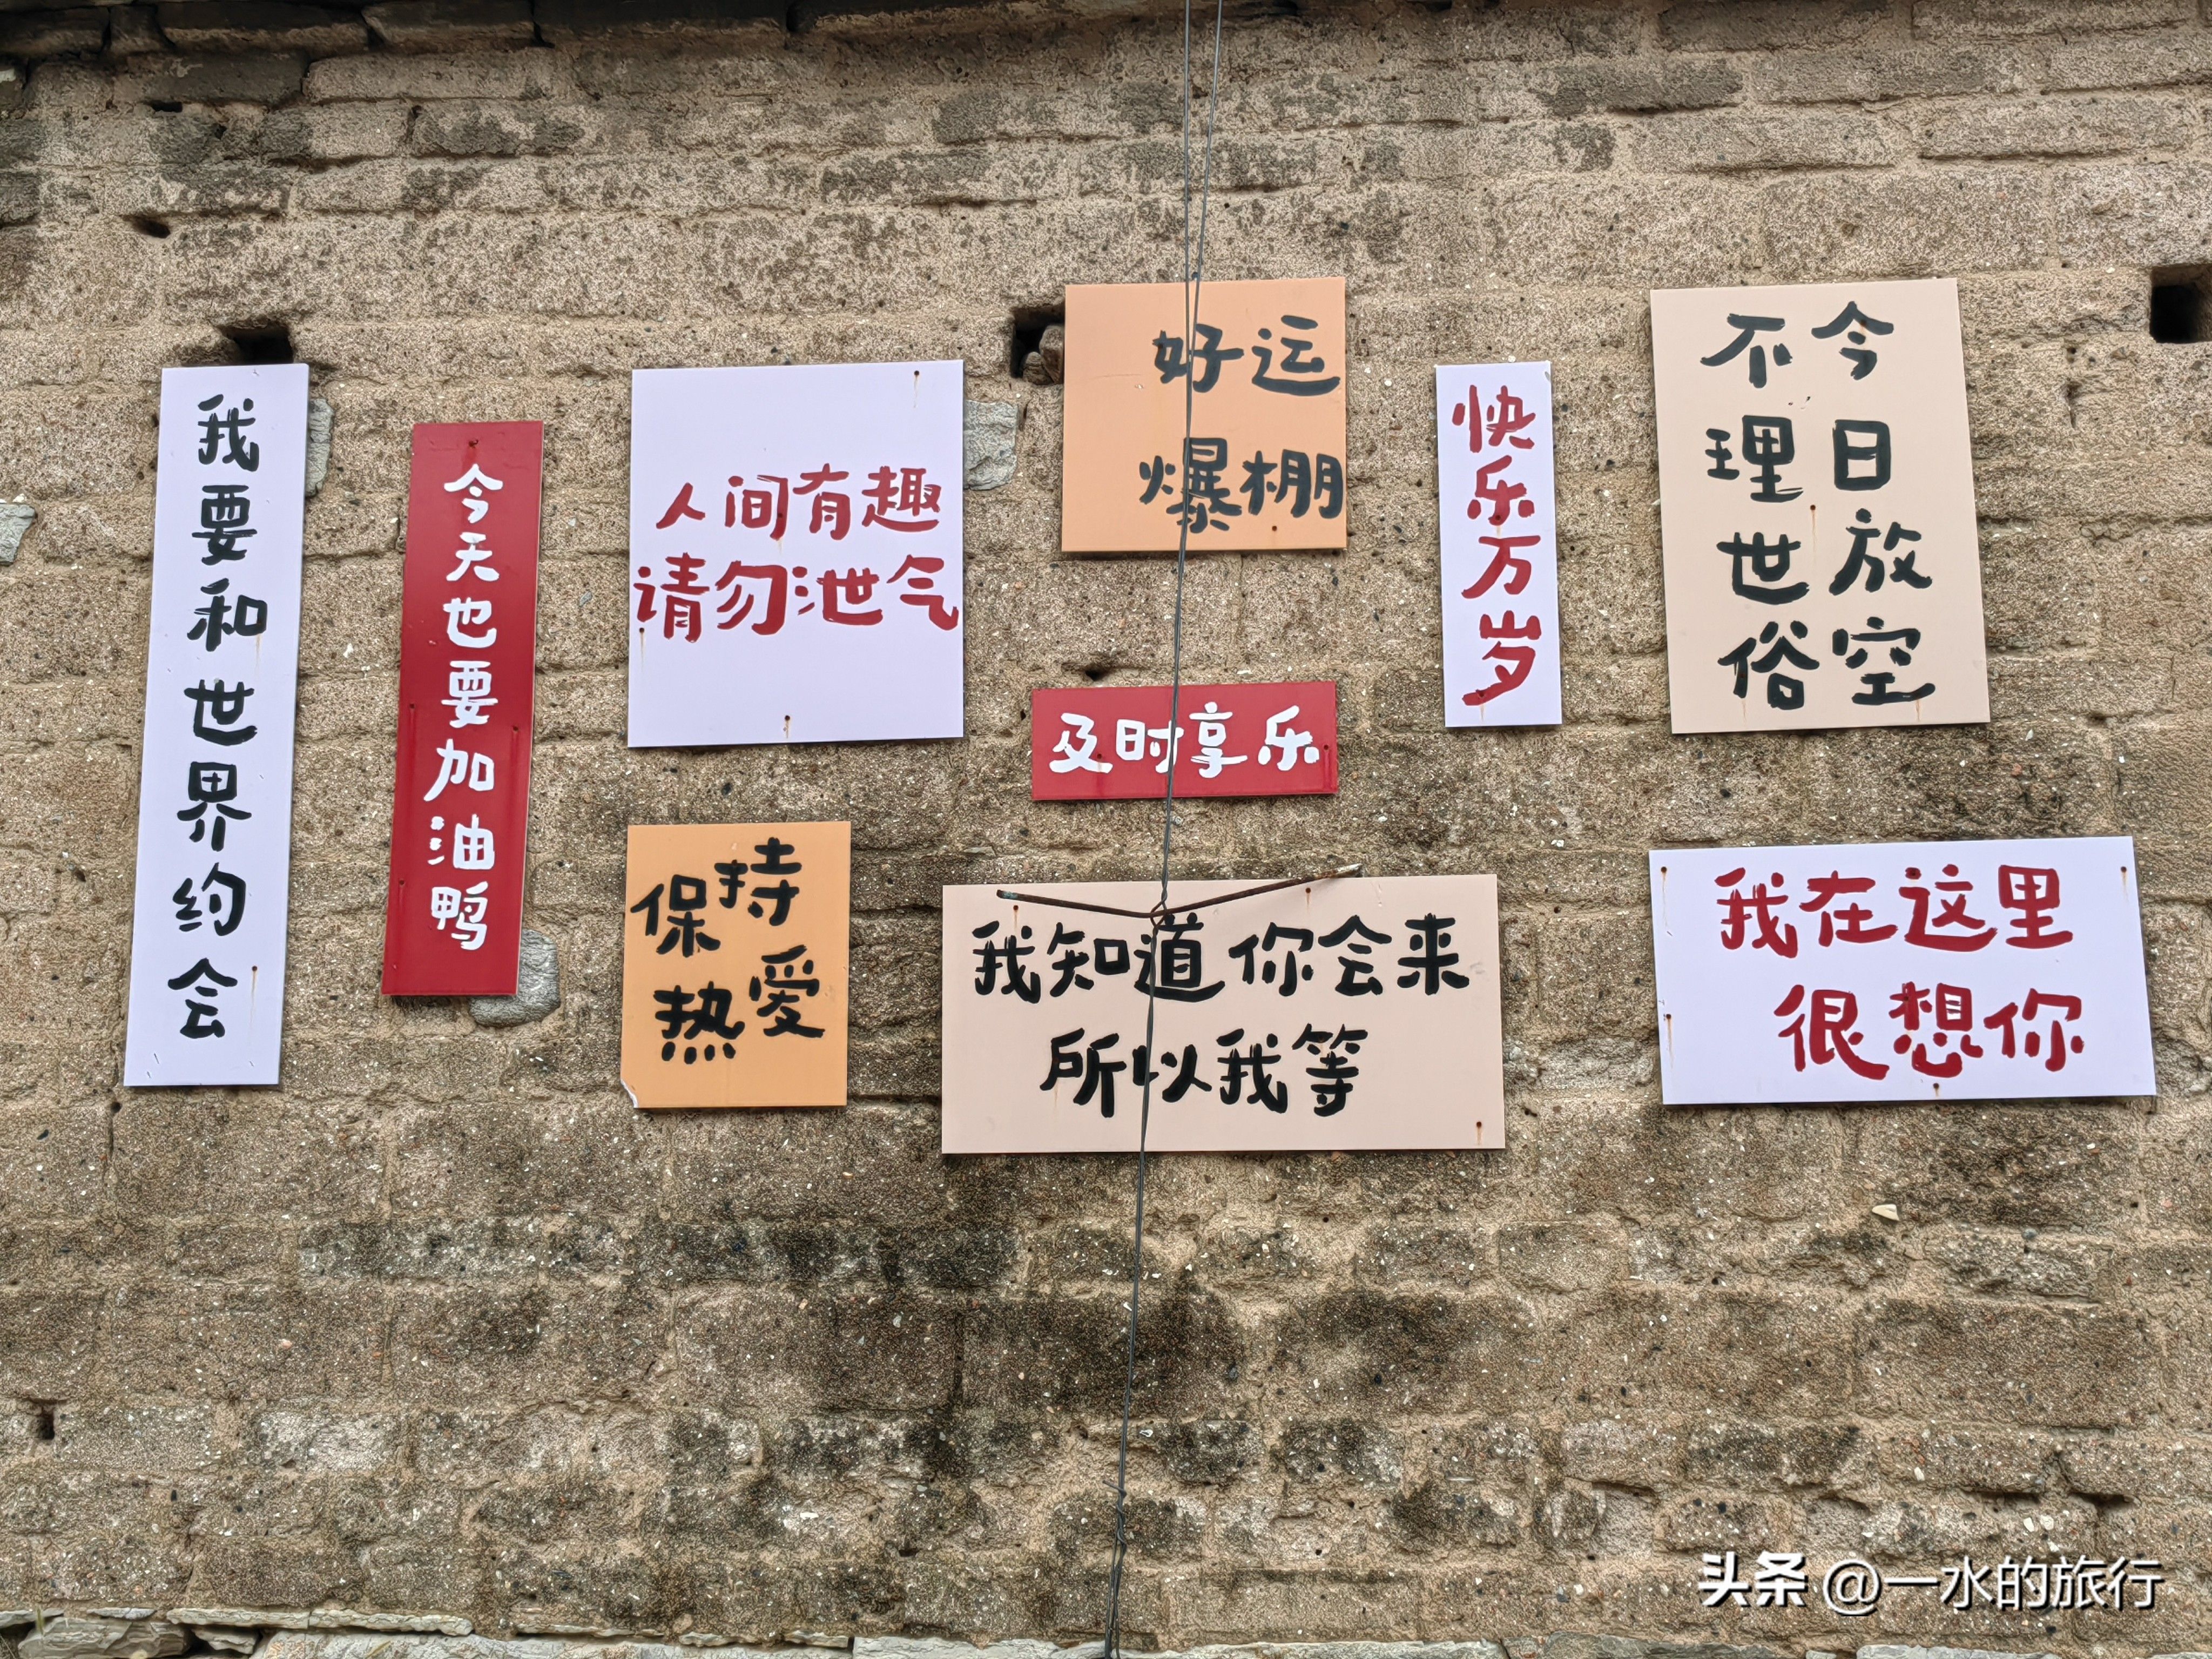 我要和世界约会
今天也要加油鸭
人间有趣
请勿泄气
好运
爆棚
快乐万岁
今日放空
不理世俗
及时享乐
保持
热爱
我知道你会来
所以我等
我在这里
很想你
头条 @一水的旅行